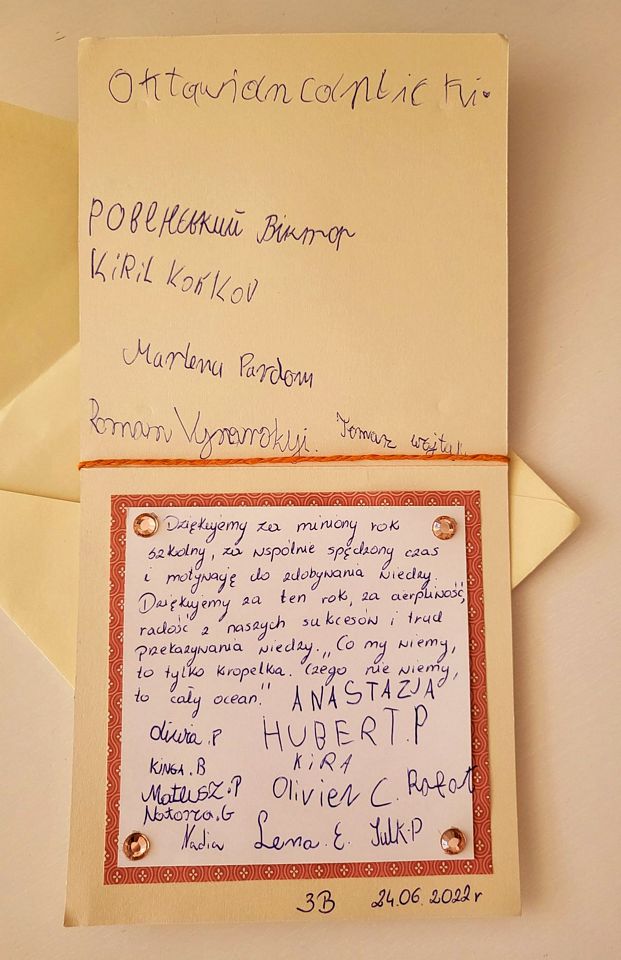 Oktawian
РОВЕНСЬКИЙ Віктор
KiRiL KOKKOV
Marlena Pardon
Roman Tomasz
Dziękujemy za miniony rok
szkolny, za wspólnie spędzony czas
i motywaję do zdobywania wiedzy.
Dziękujemy za ten rok, za cierpliwość,
radość z naszych sukcesów i trud
przekazywania wiedzy. „Co my wiemy,
to tylko kropelka. Czego nie wiemy,
to cały ocean."
ANASTAZJA
Oliwia.P HUBERT.P
KINGA.B KiRA
MATEUSZ.P Olivier C. Rafał
Nadia Lena. E. Julk.P
3B 24.06.2022r